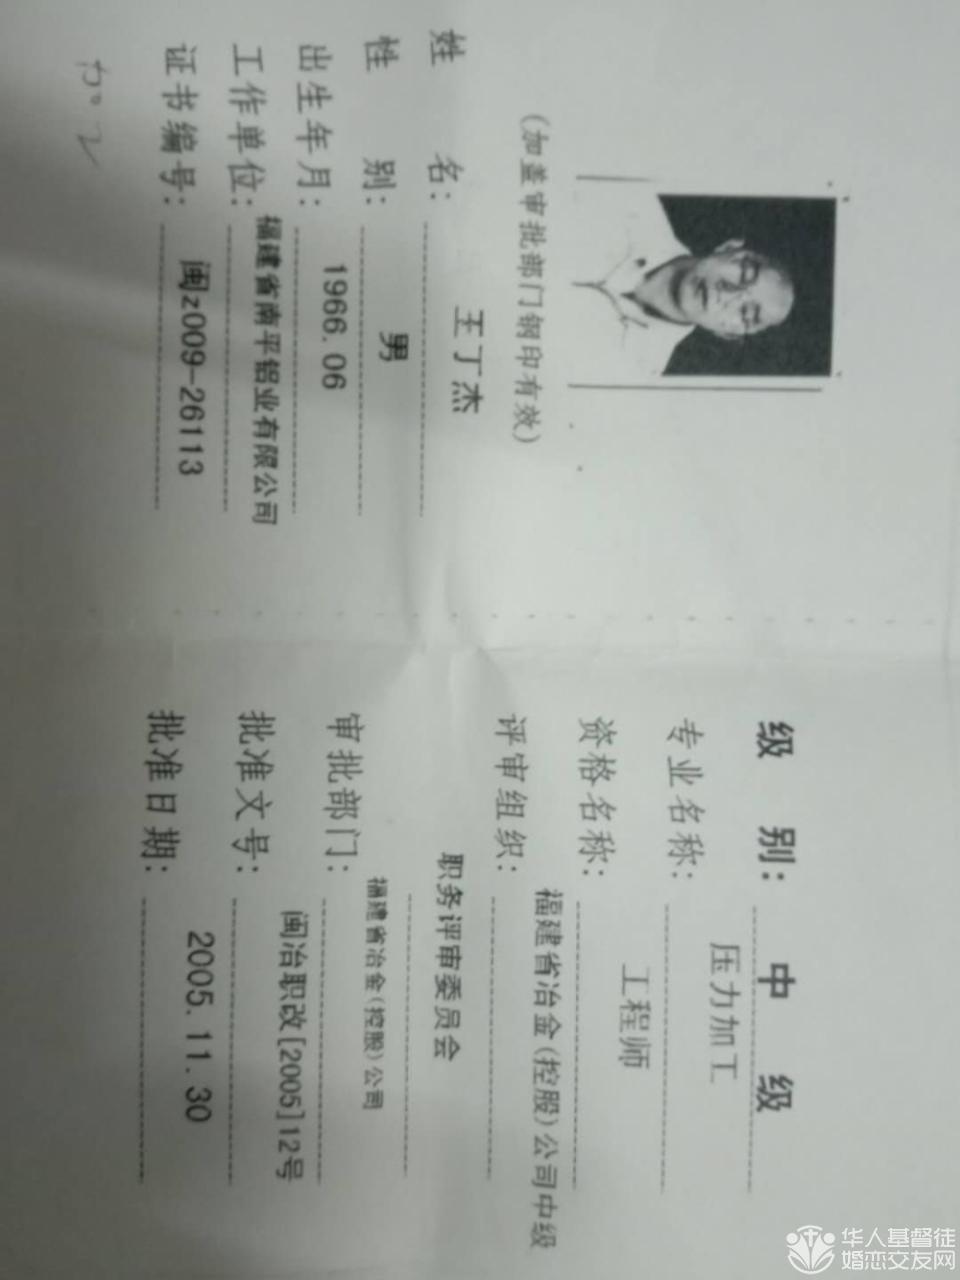 (加盖审批部门钢印有效)
姓 名: 王丁杰
性 别: 男
出生年月: 1966.06
工作单位: 福建省南平铝业有限公司
证书编号: 闽z009-26113
级 别: 中 级
专业名称: 压力加工
资格名称: 工程师
评审组织: 福建省冶金(控股)公司中级
职务评审委员会
审批部门: 福建省冶金(控股)公司
批准文号: 闽冶职改[2005]12号
批准日期: 2005.11.30
华人基督徒
婚恋交友网